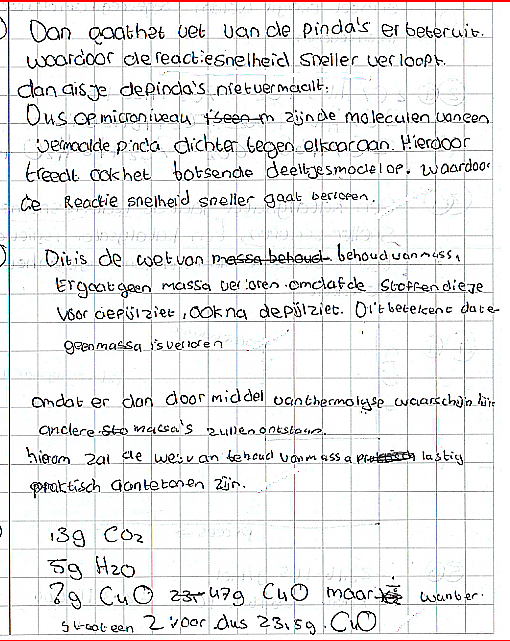 Dan gaat het vet van de pinda's er beter uit.
waardoor de reactiesnelheid sneller verloopt.
dan als je de pinda's niet vermaalt.
Dus op microniveau zijn de moleculen van een
vermaalde pinda dichter tegen elkaar aan. Hierdoor
treedt ook het botsende deeltjesmodel op. waardoor
de Reactie snelheid sneller gaat verlopen.
Dit is de wet van massa behoud behoud van massa,
Er gaat geen massa verloren omdat de stoffen die je
voor de pijl ziet, ook na de pijl ziet. Dit betekent dat e-
geen massa is verloren
omdat er dan door middel van thermolyse waarschijnlijk
andere sto massa's zullen ontstaan.
hierom zal de wet van behoud van massa lastig
praktisch aan te tonen zijn.
13g CO2
5g H2O
?g CuO 23- 47g CuO maar want er
staat een 2 voor dus 23,5g CuO